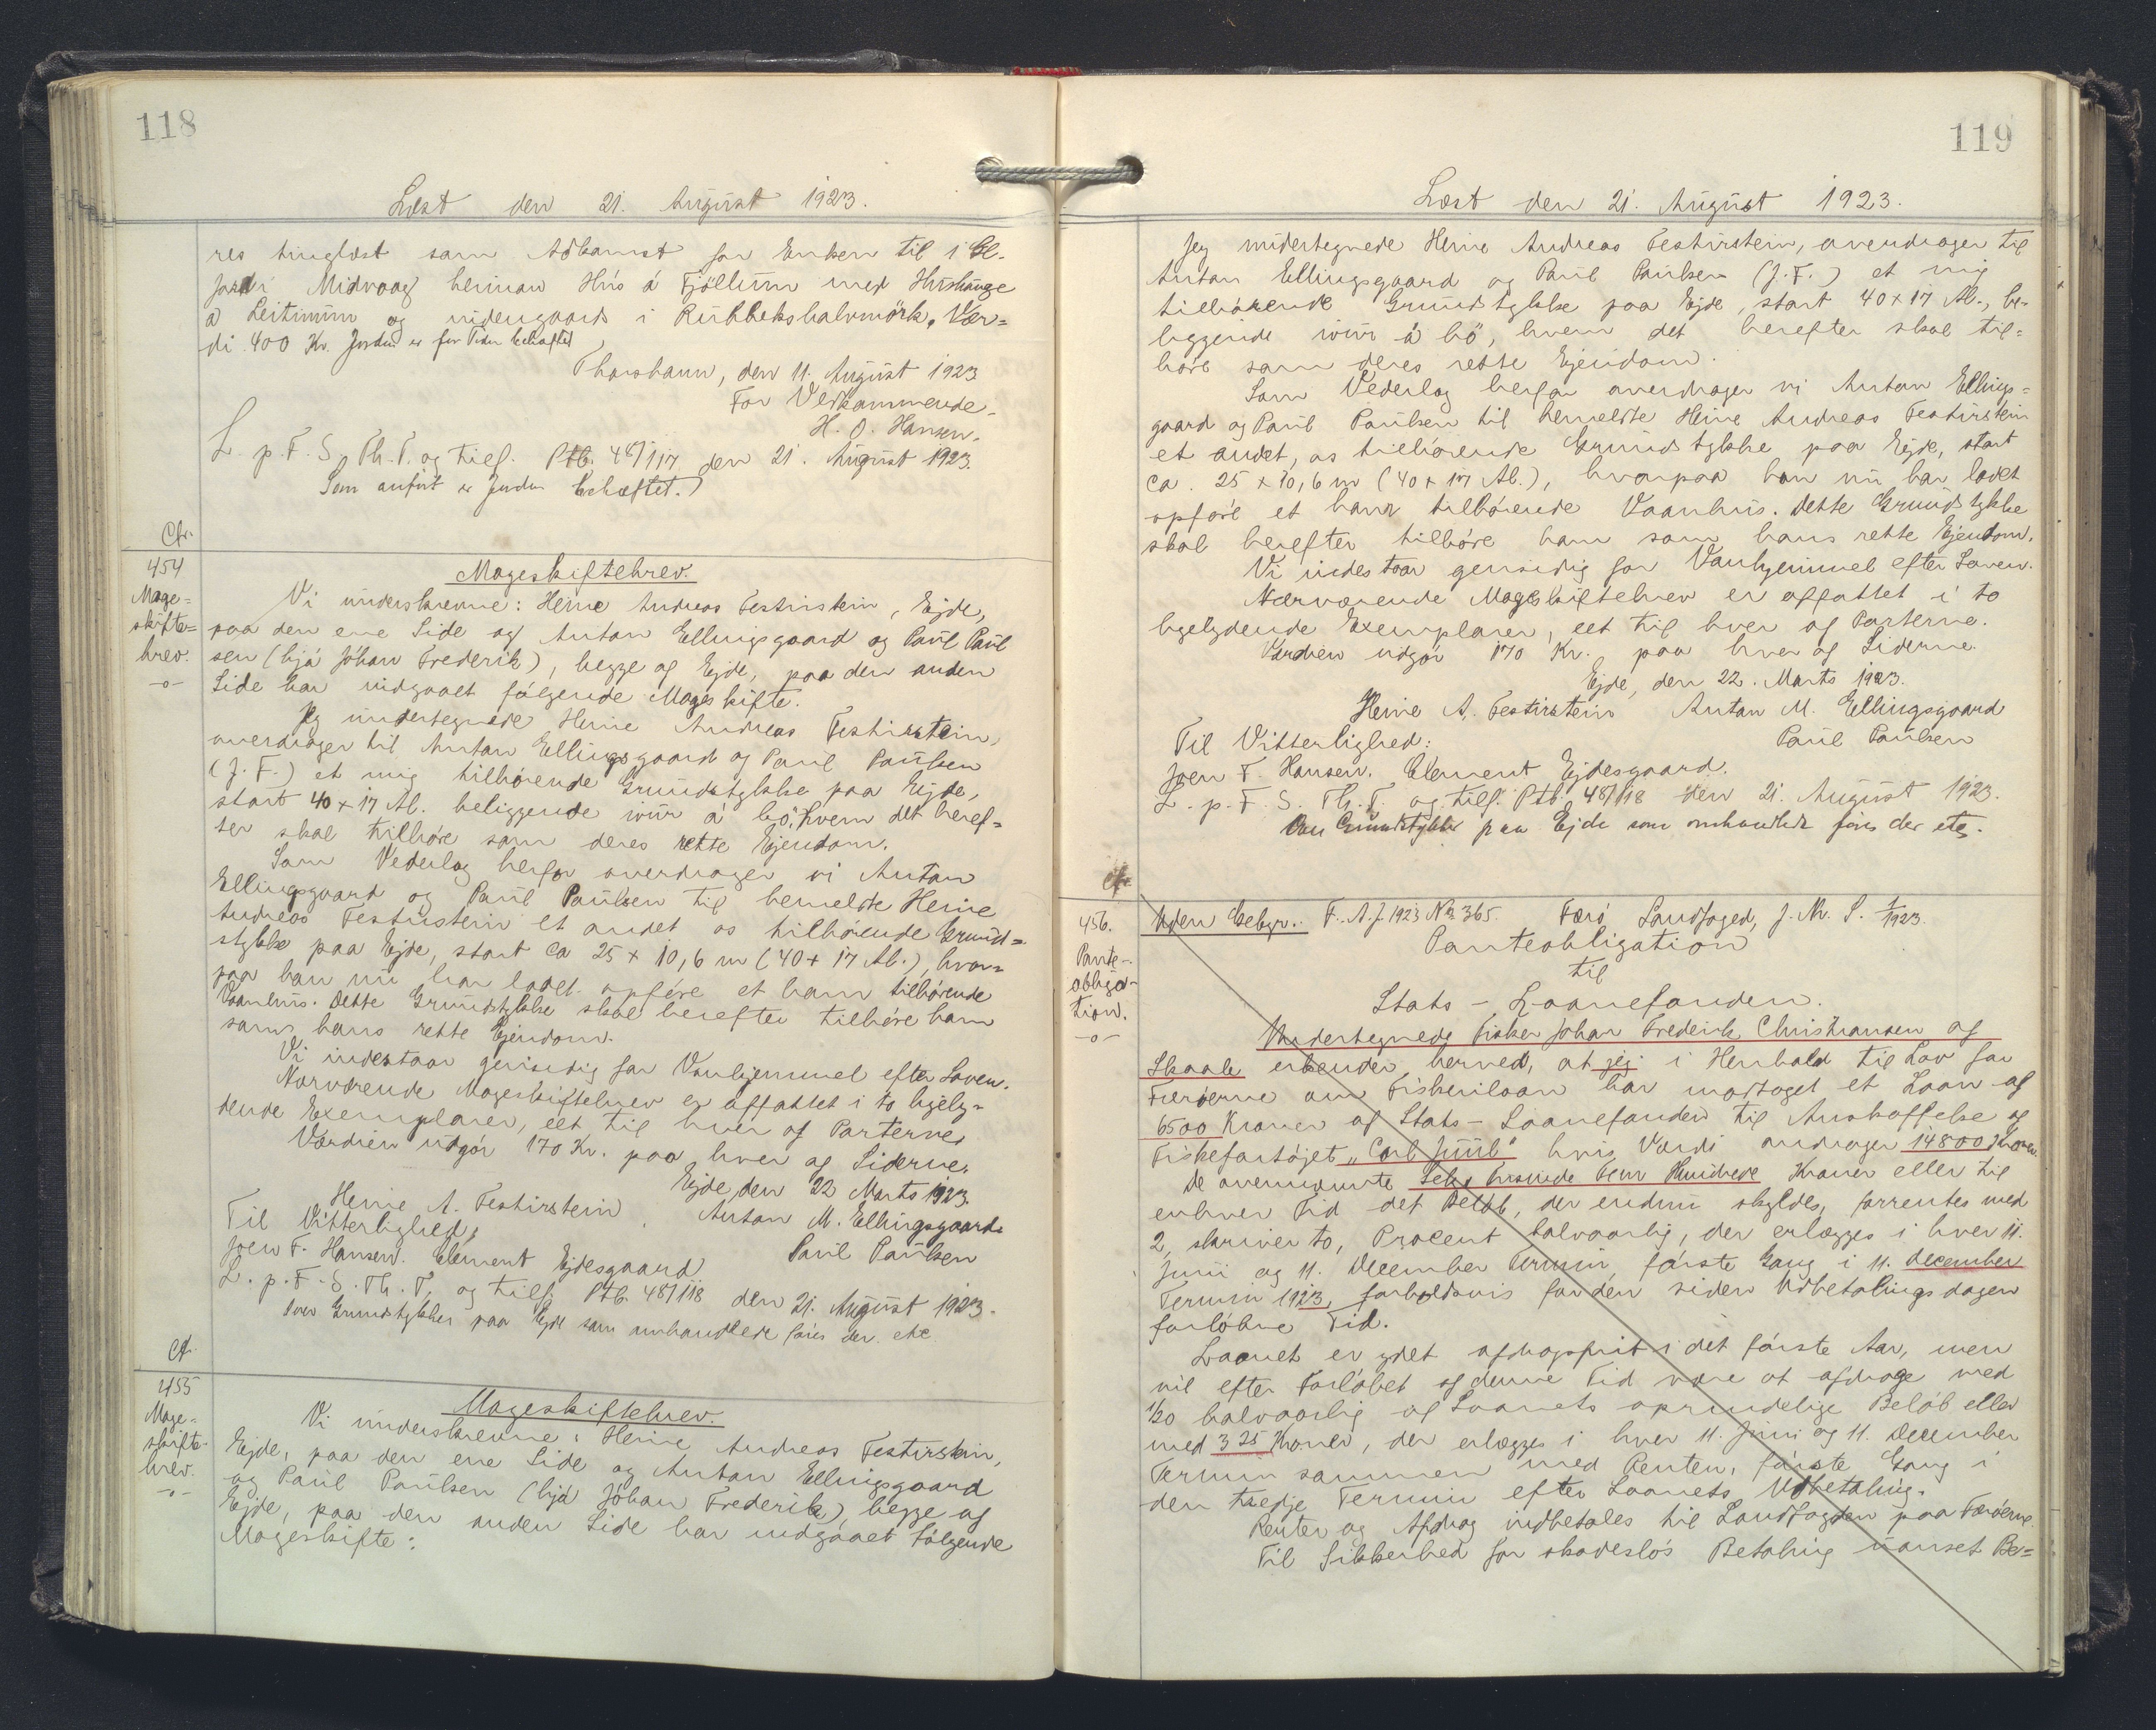 118
Læst den 21. August 1923.
res tinglæst som Adkomst for Enken til 1 Gl.
Jord i Midvaag heiman Hús á Fjöllum med Húshauge
a Leitinum og uidengaards i Ruhbekshalvmörk. Vær=
di 400 Kr. Jorden er før Tiden behæftet
Thorshavn, den 11. August 1923
For Vedkommende.
H. O. Hansen.
L. p. F. S. Th. T. og tilf. Ptb. 48/117 den 21. August 1923.
Som anført er Jorden behæftet.
Cfr.
454
Mage=
skifte=
brev.
-o-
Mageskiftebrev.
Vi underskrevne: Heine Andreas Festirstein, Ejde,
paa den ene Side og Antan Ellingsgaard og Paul Paul
sen (hjá Jóhan Frederik), begge af Ejde, paa den anden
Side har indgaaet følgende Mageskifte.
Jeg undertegnede Heine Andreas Festirstein,
overdrager til Antan Ellingsgaard og Paul Paulsen
(J. F.) et mig tilhørende Grundstykke paa Ejde,
stort 40 x 17 Al. beliggende inni á bö, hvem det heref=
ter skal tilhøre som deres rette Ejendom.
Som Vederlag herfor overdrager vi Antan
Ellingsgaard og Paul Paulsen til bemeldte Heine
Andreas Festirstein et andet os tilhørende Grund=
stykke paa Ejde, stort ca 25 x 10,6 m (40 x 17 Al.), hvor=
paa han nu har ladet opføre et ham tilhørende
Vaanhus. Dette Grundstykke skal herefter tilhøre ham
som hans rette Ejendom.
Vi indestaar gensidig for Vanhjemmel efter Loven.
Nærværende Mageskiftebrev er affattet i to ligely=
dende Exemplarer, eet til hver af Parterne.
Værdien udgør 170 Kr. paa hver af Siderne.
Ejde, den 22 Marts 1923.
Heine A. Festirstein Antan M. Ellingsgaard.
Til Vitterlighed: Paul Paulsen
Joen F. Hansen. Clement Ejdesgaard
L. p. F. S. Th. T. og tilf. Ptb. 48/118 den 21. August 1923.
Grundstykker paa Ejde som omhandlede føres der. etc.
Cf.
455
Mage=
skifte-
brev.
-o-
Mageskiftebrev.
Vi underskrevne: Heine Andreas Festirstein,
Ejde, paa den ene Side og Antan Ellingsgaard
og Paul Paulsen (hjá Jóhan Frederik), begge af
Ejde, paa den anden Side har indgaaet følgende
Mageskifte:
119
Læst den 21. August 1923.
Jeg undertegnede Heine Andreas Festirstein, overdrager til
Antan Ellingsgaard og Paul Paulsen (J. F.) et mig
tilhørende Grundstykke paa Ejde, stort 40 x 17 Al., be-
liggende inni á bö, hvem det herefter skal til=
høre som deres rette Ejendom.
Som Vederlag herfor overdrager vi Antan Ellings=
gaard og Paul Paulsen til bemeldte Heine Andreas Festirstein
et andet, os tilhørende Grundstykke paa Ejde, stort
ca. 25 x 10,6 m (40 x 17 Al.), hvorpaa han nu har ladet
opføre et ham tilhørende Vaanhus. Dette Grundstykke
skal herefter tilhøre ham som hans rette Ejendom.
Vi indestaar gensidig for Vanhjemmel efter Loven.
Nærværende Mageskiftebrev er affattet i to
ligelydende Exemplarer, eet til hver af Parterne.
Værdien udgør 170 Kr. paa hver af Siderne.
Ejde, den 22. Marts 1923.
Heine A. Festirstein Antan M. Ellingsgaard
Til Vitterlighed: Paul Paulsen
Joen F. Hansen. Clement Ejdesgaard.
L. p. F. S. Th. T. og tilf. Ptb. 48/118 den 21. August 1923.
Grundstykker paa Ejde som omhandlede føres der etc.
Cfr.
456.
Pante-
obliga-
tion.
-o-
Uden Gebyr. F. A. J. 1923 No 365. Færø Landfoged, J. Nr. S. 1/1923.
Panteobligation
til
Stats - Laanefonden.
Undertegnede Fisker Johan Frederik Christiansen af
Skaale erkender herved, at jeg i Henhold til Lov for
Færøerne om Fiskerilaan har modtaget et Laan af
6500 Kroner af Stats - Laanefonden til Anskaffelse af
Fiskefartøjet „Carl Juul" hvis Værdi andrager 14800 Kroner.
De ovennævnte Seks Tusinde Fem Hundrede Kroner eller til
enhver Tid det Beløb, der endnu skyldes, forrentes med
2, skriver to, Procent halvaarlig, der erlægges i hver 11.
Juni og 11. December Termin, første Gang i 11. December
Termin 1923, forholdsvis for den siden Udbetalingsdagen
forløbne Tid.
Laanet er ydet afdragsfrit i det første Aar, men
vil efter Forløbet af denne Tid være at afdrage med
1/20 halvaarlig af Laanets oprindelige Beløb eller
med 325 Kroner, der erlægges i hver 11. Juni og 11. December
Termin sammen med Renten, første Gang i
den tredje Termin efter Laanets Udbetaling.
Renter og Afdrag indbetales til Landfogden paa Færøerne.
Til Sikkerhed for skadesløs Betaling uanset Be=